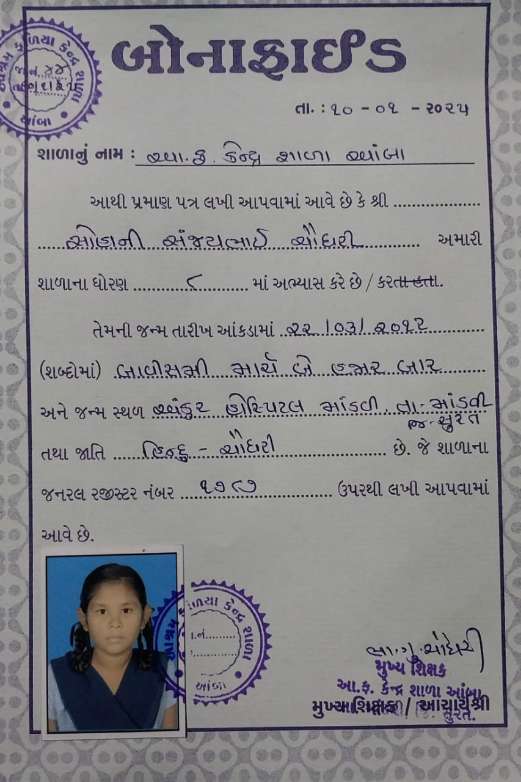 બોનાફાઈડ
તા. : ૧૦ - ૦૧ - ૨૦૨૫
શાળાનું નામ : આ.ફ. કેન્દ્ર શાળા આંબા
આથી પ્રમાણ પત્ર લખી આપવામાં આવે છે કે શ્રી
સોહાની સંજયભાઈ ચૌધરી અમારી
શાળાના ધોરણ ૮ માં અભ્યાસ કરે છે / કરતા હતા.
તેમની જન્મ તારીખ આંકડામાં ૨૨/૦૩/૨૦૧૨
(શબ્દોમાં) બાવીસમી માર્ચ બે હજાર બાર
અને જન્મ સ્થળ હોસ્પિટલ માંડવી, તા-માંડવી
જિ-સુરત
તથા જાતિ હિન્દુ - ચૌધરી છે. જે શાળાના
જનરલ રજીસ્ટર નંબર ઉપરથી લખી આપવામાં
આવે છે.
મુખ્ય શિક્ષક
આ.ફ. કેન્દ્ર શાળા આંબા
મુખ્યશિક્ષક / આચાર્યશ્રી